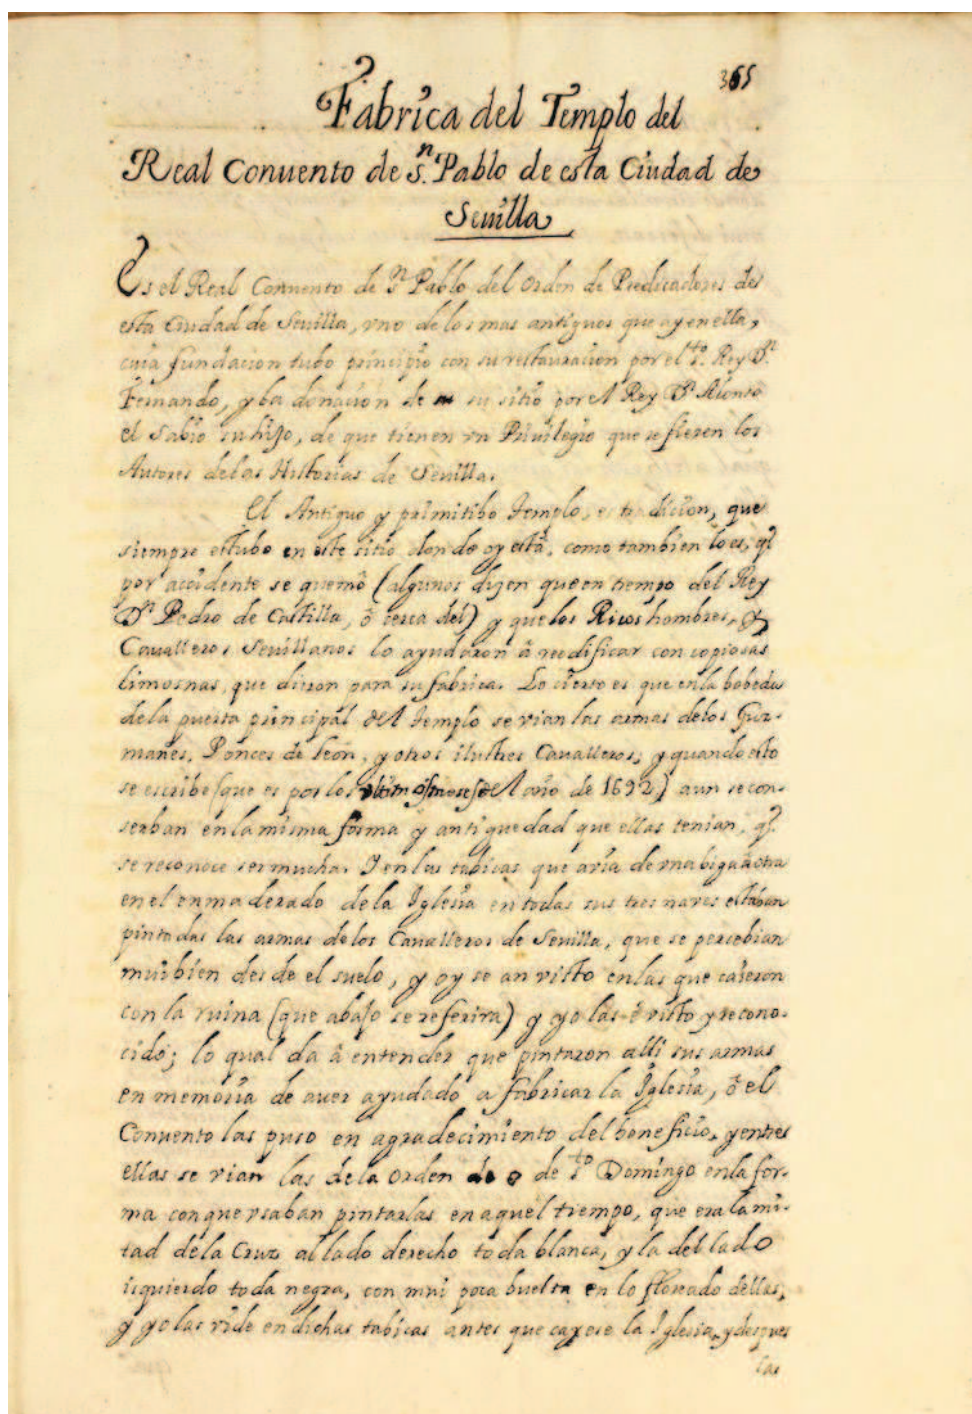 365
Fabrica del Templo del
Real Conuento de Sn. Pablo de esta Ciudad de
Seuilla
Es el Real Conuento de Sn. Pablo del Orden de Predicadores de
esta Ciudad de Seuilla, vno de los mas antiguos que ay en ella,
cuia fundacion tubo principio con su restauracion por el Sto. Rey Dn.
Fernando, y la donacion de su sitio por el Rey Dn. Alonso
el Sabio su hijo, de que tienen vn Priuilegio que refieren los
Autores de las Historias de Seuilla.
El Antiguo y primitibo Templo, es tradicion, que
siempre estubo en este sitio donde oy està, como tambien lo es, q̃
por accidente se quemò (algunos dizen que en tiempo del Rey
Dn. Pedro de Castilla, ò cerca del) y que los Ricos hombres, y
Caualleros Seuillanos lo ayudaron à reedificar con copiosas
limosnas, que dieron para su fabrica. Lo cierto es que en la bobeda
de la puerta principal del Templo se vian las armas de los Guz-
manes, Ponces de Leon, y otros ilustres Caualleros; y quando esto
se escribe (que es por los vltimos meses del año de 1692) aun se con-
serban en la misma forma y antiguedad que ellas tenian, q̃
se reconoce ser mucha. Y en las tabicas que avia de vna biga à otra
en el enmaderado de la Iglesia en todas sus tres naves estaban
pintadas las armas de los Caualleros de Seuilla, que se percebian
mui bien desde el suelo, y oy se an visto en las que caieron
con la ruina (que abajo se referira) y yo las è visto y recono-
cido; lo qual da à entender que pintaron alli sus armas
en memoria de auer ayudado a fabricar la Iglesia, ò el
Conuento las puso en agradecimiento del beneficio, y entre
ellas se vian las de la Orden de Sto. Domingo en la for-
ma con que vsaban pintarlas en aquel tiempo, que era la mi-
tad de la Cruz al lado derecho toda blanca, y la del lado
isquierdo toda negra, con mui poca buelta en lo floreado dellas,
y yo las vide en dichas tabicas antes que cayese la Iglesia, y despues
las